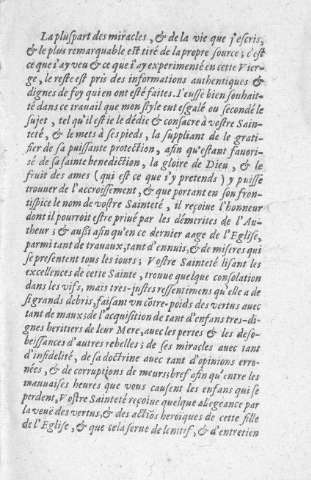 La pluspart des miracles, & de la vie que j'escris,
& le plus remarquable est tiré de la propre source; c'est
ce que i'ay veu & ce que i'ay experimenté en cette Vier-
ge, le reste est pris des informations authentiques &
dignes de foy qui en ont esté faites. I'eusse bien souhait-
té dans ce travail que mon style eut esgalé ou secondé le
sujet, tel qu'il est ie le dédie & consacre à vostre Sain-
teté, & le mets à ses pieds, la suppliant de le grati-
fier de sa puissante protection, afin qu'estant favori-
sé de sa sainte benediction, la gloire de Dieu, & le
fruit des ames (qui est ce que i'y pretends) y puisse
trouver de l'accroissement, & que portant en son fron-
tispice le nom de vostre Sainteté, il reçoive l'honneur
dont il pourroit estre privé par les démerites de l'Au-
theur; & aussi afin qu'en ce dernier aage de l'Eglise,
parmi tant de travaux, tant d'ennuis, & de miseres qui
se presentent tous les iours; Vostre Sainteté lisant les
excellences de cette Sainte, trouve quelque consolation
dans les vifs, mais tres-justes ressentimens qu'elle a de
si grands debris, faisant un côtre-poids des vertus avec
tant de maux: de l'acquisition de tant d'enfans tres-di-
gnes heritiers de leur Mere, avec les pertes & les deso-
beissances d'autres rebelles; de ses miracles avec tant
d'infidelité, de sa doctrine avec tant d'opinions erro-
nées, & de corruptions de meurs: bref afin qu'entre les
mauvaises heures que vous causent les enfans qui se
perdent, Vostre Sainteté reçoive quelque alegeance par
la veuë des vertus, & des actiõs heroiques de cette fille
de l'Eglise, & que cela serve de lenitif, & d'entretien